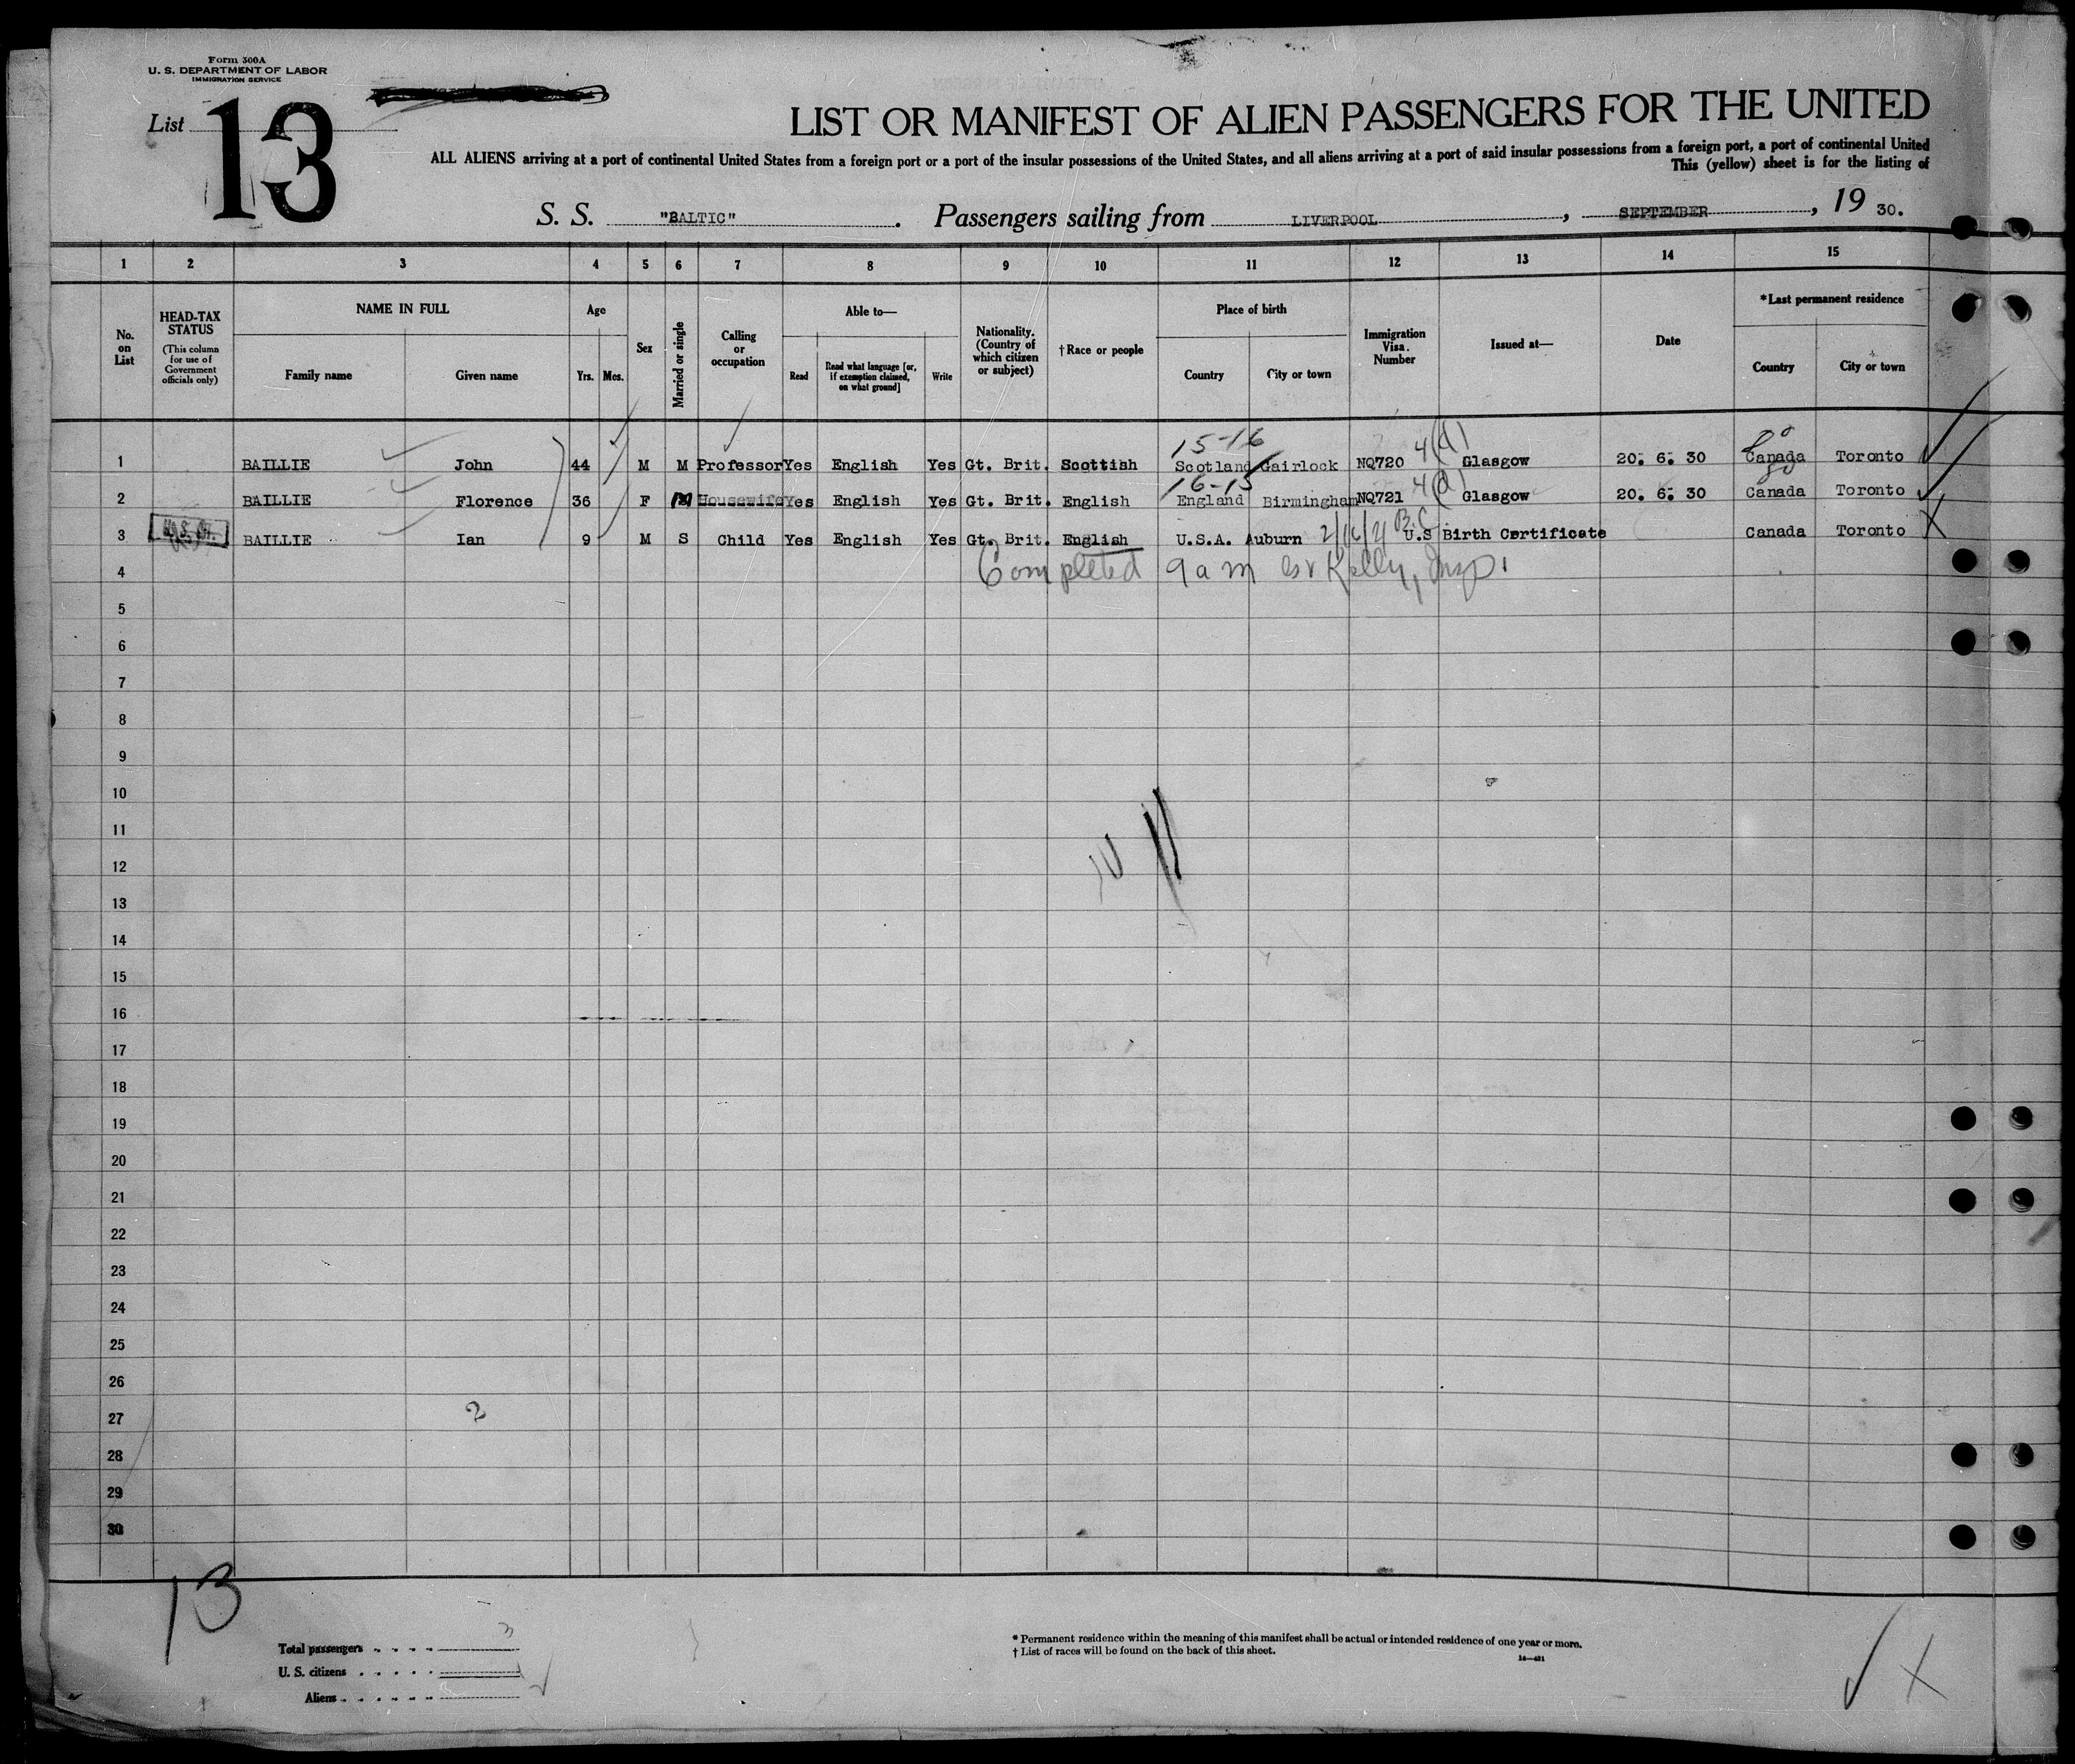 Form 300A
U. S. DEPARTMENT OF LABOR
IMMIGRATION SERVICE
List 13
LIST OR MANIFEST OF ALIEN PASSENGERS FOR THE UNITED
ALL ALIENS arriving at a port of continental United States from a foreign port or a port of the insular possessions of the United States, and all aliens arriving at a port of said insular possessions from a foreign port, a port of continental United
This (yellow) sheet is for the listing of
S. S. "BALTIC". Passengers sailing from LIVERPOOL, SEPTEMBER, 19 30.
1 2 3 4 5 6 7 8 9 10 11 12 13 14 15
No. on List
HEAD-TAX STATUS (This column for use of Government officials only)
NAME IN FULL Family name Given name
Age Yrs. Mos.
Sex
Married or single
Calling or occupation
Able to— Read Read what language [or, if exemption claimed, on what ground] Write
Nationality. (Country of which citizen or subject)
†Race or people
Place of birth Country City or town
Immigration Visa. Number
Issued at—
Date
*Last permanent residence Country City or town
15-16 4(d)
1 BAILLIE John 44 M M Professor Yes English Yes Gt. Brit. Scottish Scotland Gairlock NQ720 Glasgow 20. 6. 30 Canada Toronto
16-15 4(d)
2 BAILLIE Florence 36 F M Housewife Yes English Yes Gt. Brit. English England Birmingham NQ721 Glasgow 20. 6. 30 Canada Toronto
3 BAILLIE Ian 9 M S Child Yes English Yes Gt. Brit. English U.S.A. Auburn B.C. U.S Birth Certificate Canada Toronto
4 Completed 9am Kelly, Insp.
5
6
7
8
9
10
11
12
13
14
15
16
17
18
19
20
21
22
23
24
25
26
27 2
28
29
30
13
Total passengers 3
U. S. citizens
Aliens
* Permanent residence within the meaning of this manifest shall be actual or intended residence of one year or more.
† List of races will be found on the back of this sheet.